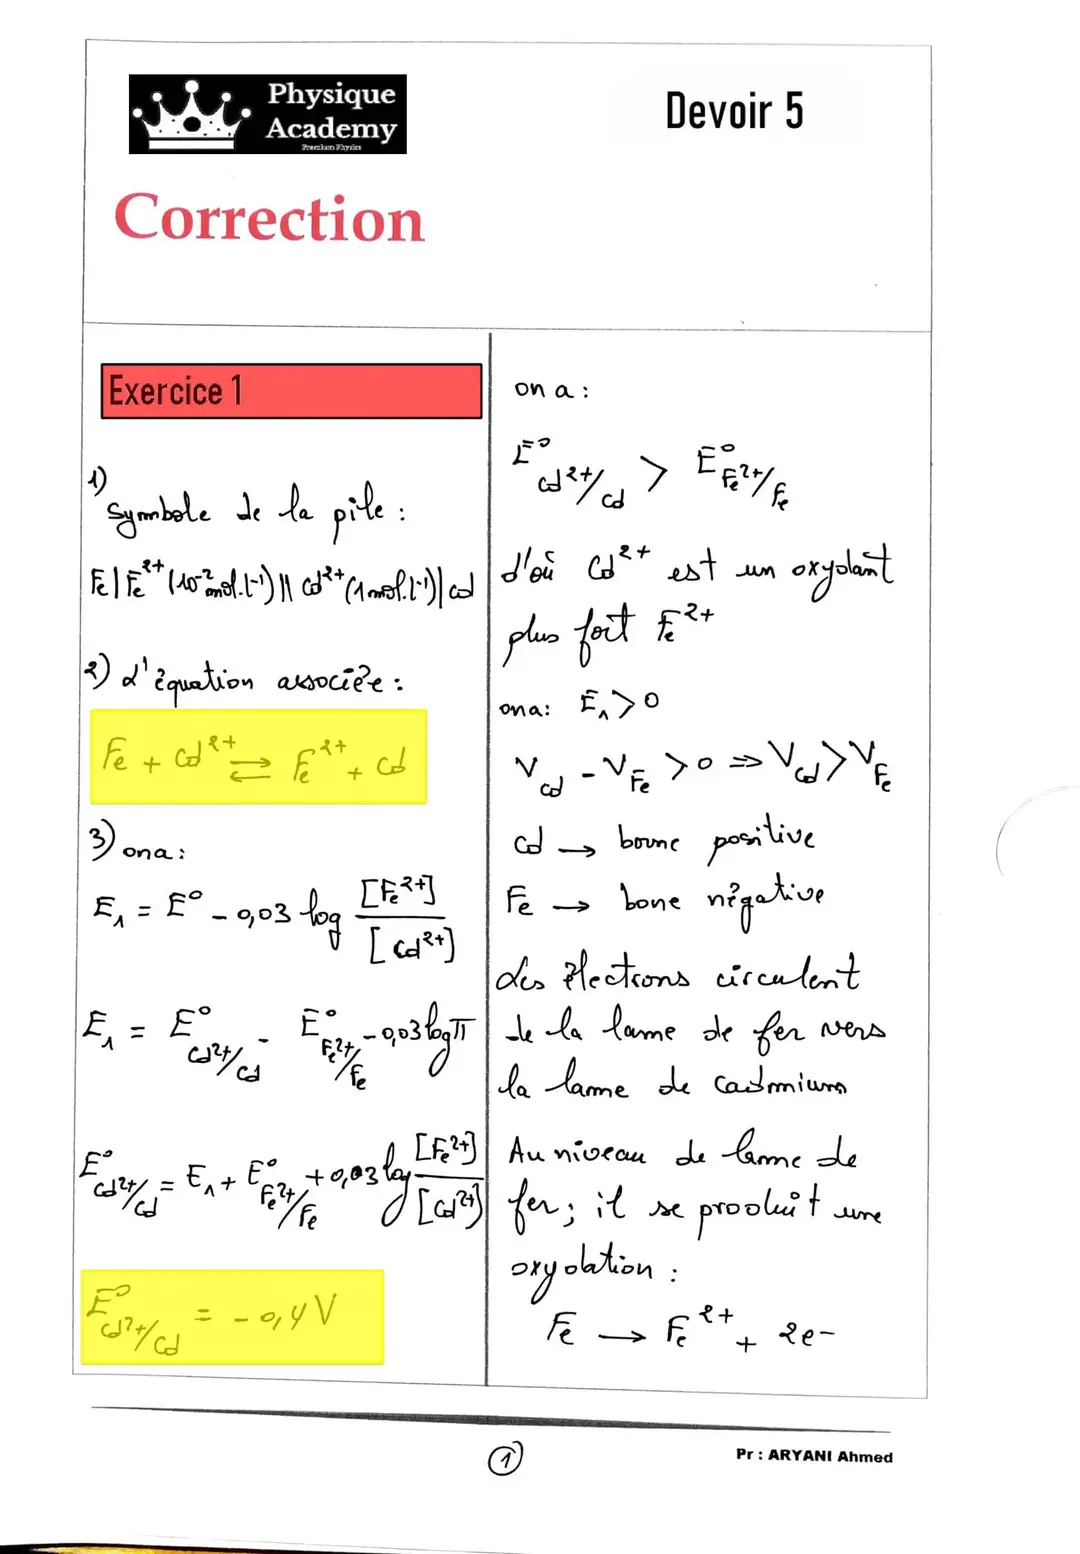 Physique
Academy
Premium Physics
Devoir 5
Correction
Exercice 1
1)
Symbole de la pile :
Fe | Fe²⁺ (10⁻² mol.l⁻¹) || Cd²⁺ (1 mol.l⁻¹) | Cd
2) L'équation associée :
Fe + Cd²⁺ ⇌ Fe²⁺ + Cd
3) on a :
E₁ = E° - 0,03 log [Fe²⁺]/[Cd²⁺]
E₁ = E°Cd²⁺/Cd - E°Fe²⁺/Fe - 0,03 log π
E°Cd²⁺/Cd = E₁ + E°Fe²⁺/Fe + 0,03 log [Fe²⁺]/[Cd²⁺]
E°Cd²⁺/Cd = - 0,4 V
on a :
E°Cd²⁺/Cd > E°Fe²⁺/Fe
d'où Cd²⁺ est un oxydant
plus fort Fe²⁺
on a : E₁ > 0
VCd - VFe > 0 ⇒ VCd > VFe
Cd → borne positive
Fe → bone négative
Les électrons circulent
de la lame de fer vers
la lame de cadmium
Au niveau de lame de
fer ; il se produit une
oxydation :
Fe → Fe²⁺ + 2e-
1
Pr : ARYANI Ahmed